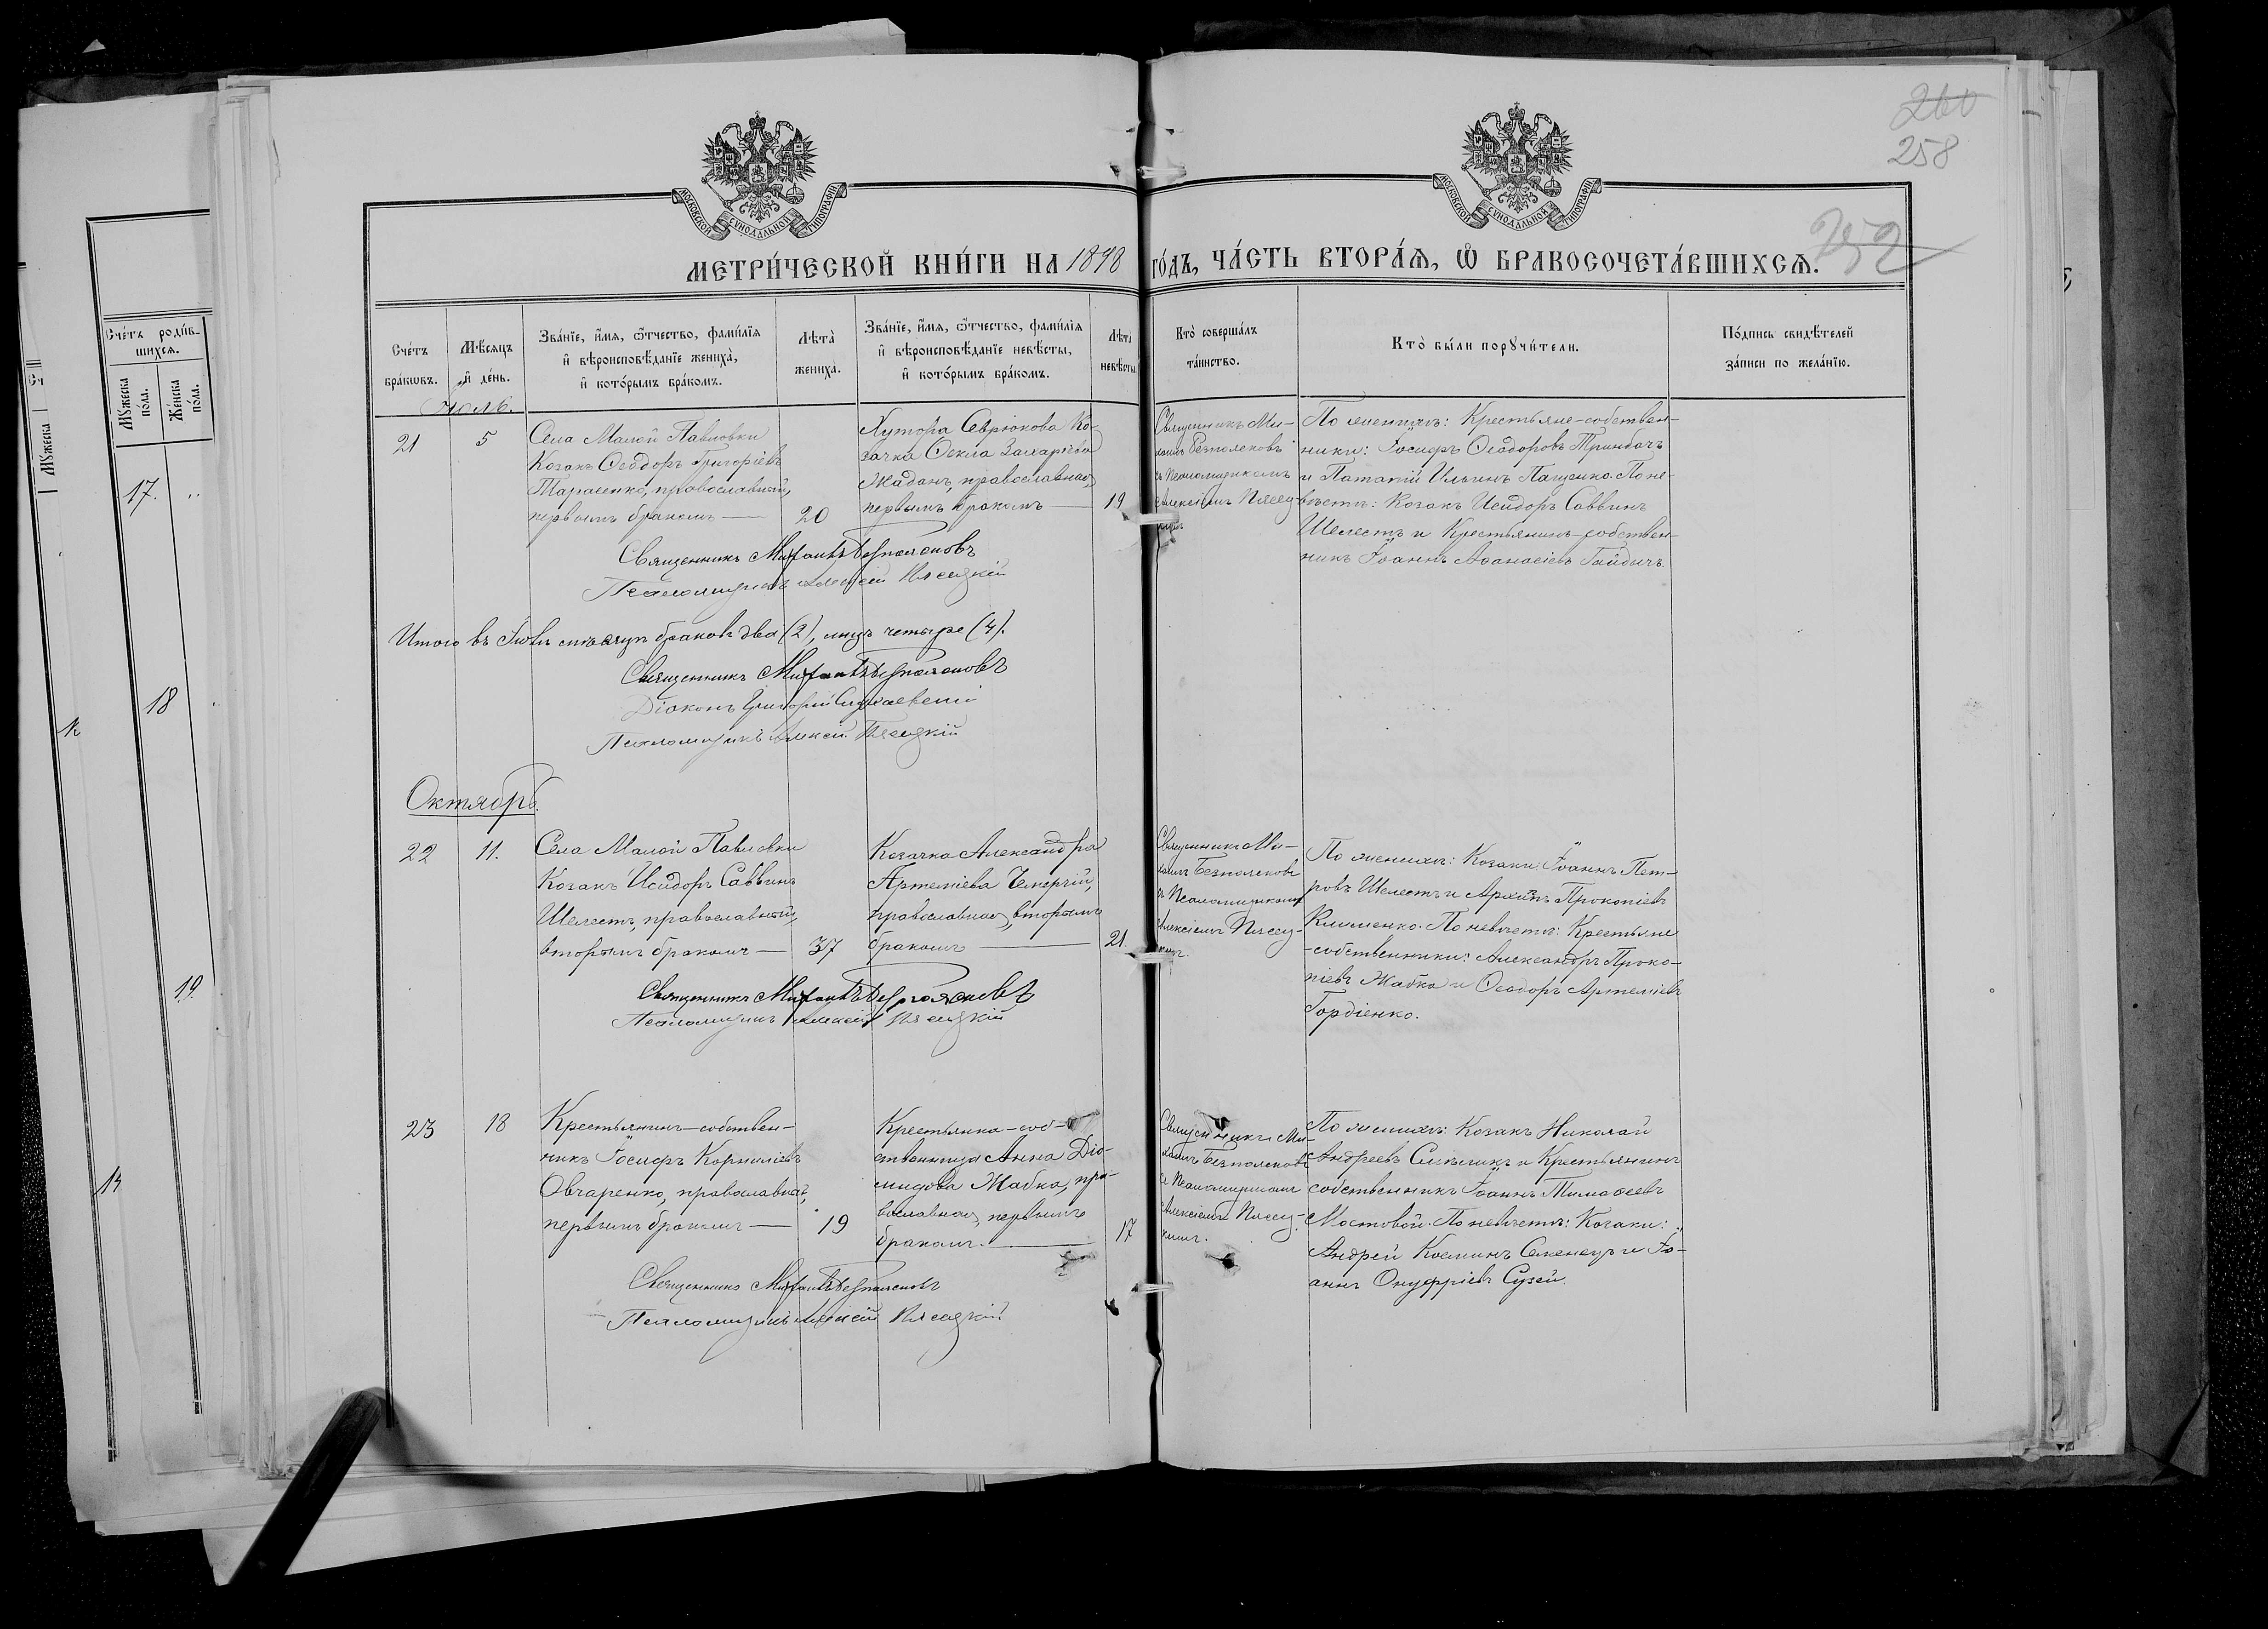 260
258
252
МОСКОВСКОЙ СУНОДАЛЬНОЙ ТИПОГРАФІИ
МОСКОВСКОЙ СУНОДАЛЬНОЙ ТИПОГРАФІИ
МЕТРИ́ЧЕСКОЙ КНИ́ГИ НА 1898 ГО́ДЪ, ЧА́СТЬ ВТОРА́Ѧ, Ѡ БРАКОСОЧЕТА́ВШИХСѦ.
Сче́тъ
бра́кωвъ.
Мѣ́сѧцъ
и҆ де́нь.
Зва́нїе, и҆́мѧ, ѻ҆́тчество, фами́лїѧ
и҆ вѣроисповѣ́данїе жениха̀,
и҆ кото́рымъ бра́комъ.
Лѣ́та̀
жениха̀.
Зва́нїе, и҆́мѧ, ѻ҆́тчество, фами́лїѧ
и҆ вѣроисповѣ́данїе невѣ́сты,
и҆ кото́рымъ бра́комъ.
Лѣ́та̀
невѣ́сты.
Кто̀ соверша́лъ
та́инство.
Кто̀ бы́ли порꙋчи́тели.
По́дпись свидѣ́телей
за́писи по жела́нїю.
Іюль.
21
5
Села Малой Павловки
Козакъ Ѳеодоръ Григоріевъ
Тарасенко, православный,
первымъ бракомъ —
20
Хутора Севрюкова Ко-
зачка Ѳекла Захаріева
Жаданъ, православная,
первымъ бракомъ —
19
Священникъ Ми-
хаилъ Безполековъ
съ Псаломщикомъ
Алексіемъ Пясец-
кимъ
По женихѣ: Крестьяне-собствен-
ники: Іосифъ Ѳеодоровъ Тринбачъ
и Потапій Ильинъ Пащенко. По не-
вѣстѣ: Козакъ Исидоръ Саввинъ
Шелестъ и Крестьянинъ-собствен-
никъ Іоаннъ Аѳанасіевъ Гайдычъ.
Священникъ Михаилъ Безполековъ
Псаломщикъ Алексій Пясецкій
Итого въ Іюлѣ мѣсяцѣ браковъ два (2), лицъ четыре (4).
Священникъ Михаилъ Безполековъ
Діаконъ Григорій
Псаломщикъ Алексій Пясецкій
Октябрь.
22
11.
Села Малой Павловки
Козакъ Исидоръ Саввинъ
Шелестъ, православный,
вторымъ бракомъ —
37
Козачка Александра
Артеміева
православная, вторымъ
бракомъ —
21
Священникъ Ми-
хаилъ Безполековъ
съ Псаломщикомъ
Алексіемъ Пясец-
кимъ.
По женихѣ: Козаки: Іоаннъ Пет-
ровъ Шелестъ и Архипъ Прокопіевъ
Клименко. По невѣстѣ: Крестьяне
-собственники: Александръ Проко-
піевъ Жабка и Ѳеодоръ Артеміевъ
Гордіенко.
Священникъ Михаилъ Безполековъ
Псаломщикъ Алексій Пясецкій
23
18
Крестьянинъ-собствен-
никъ Іосифъ Корниліевъ
Овчаренко, православный,
первымъ бракомъ —
19
Крестьянка-соб-
ственница Анна Діо-
мидова Жабка, пра-
вославная, первымъ
бракомъ. —
17
Священникъ Ми-
хаилъ Безполековъ
съ Псаломщикомъ
Алексіемъ Пясец-
кимъ.
По женихѣ: Козакъ Николай
Андреевъ и Крестьянинъ
собственникъ Іоаннъ Тимоѳеевъ
Мостовой. По невѣстѣ: Козаки:
Андрей Косминъ Семенецъ и Іо-
аннъ Онуфріевъ Сузей.
Священникъ Михаилъ Безполековъ
Псаломщикъ Алексій Пясецкій
Сче́тъ роди́в-
шихсѧ.
Мꙋ́жеска
по́ла.
Же́нска
по́ла.
17.
18
19
Мꙋ́жеска